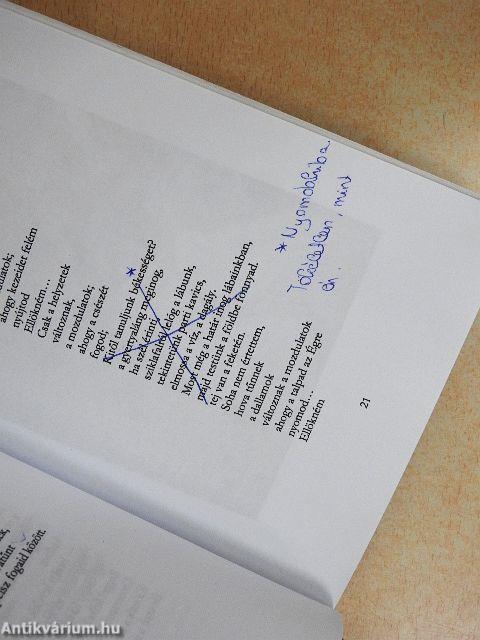 ahogy kezeidet felém
nyújtod
Ellökném...
Csak a helyzetek
változnak,
a mozdulatok;
ahogy a csészét
fogod;
Kitől tanuljunk békességet?
a gyertyaláng meginog,
ha szél érinti,
sziklafalról lelóg a lábunk,
tekintetünk parti kavics,
elmossa a víz, a dagály.
Most még a határ inog lábainkban,
majd testünk a Földbe fonnyad.
tej van a feketén.
Soha nem értettem,
hova tűnnek
a dallamok
változnak a mozdulatok
ahogy a talpad az Égre
nyomod...
Ellökném
* Nyomdahiba.
mint
én.
21
fogaid között.
Antikvárium.hu